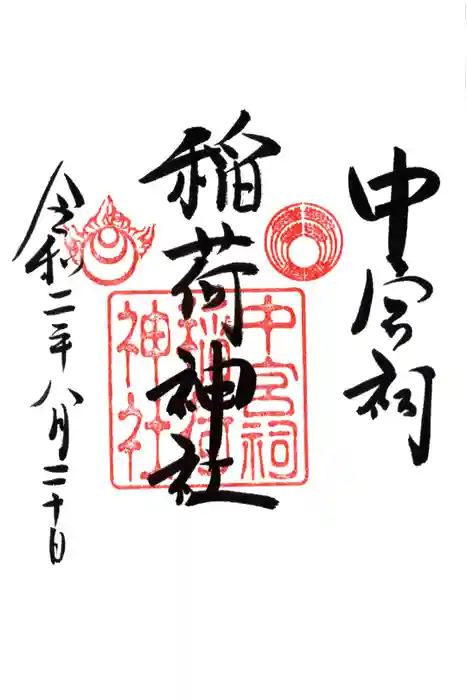 中宮祠
稲荷神社
令和二年八月二十日
中宮祠
稲荷
神社